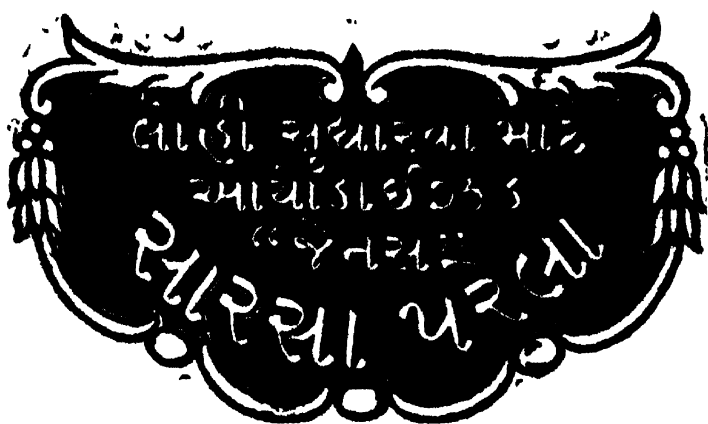 લોહી સુધારવા માટે
આયોડાઈઝ્ડ
“જૈનસન
સારસા પરલા